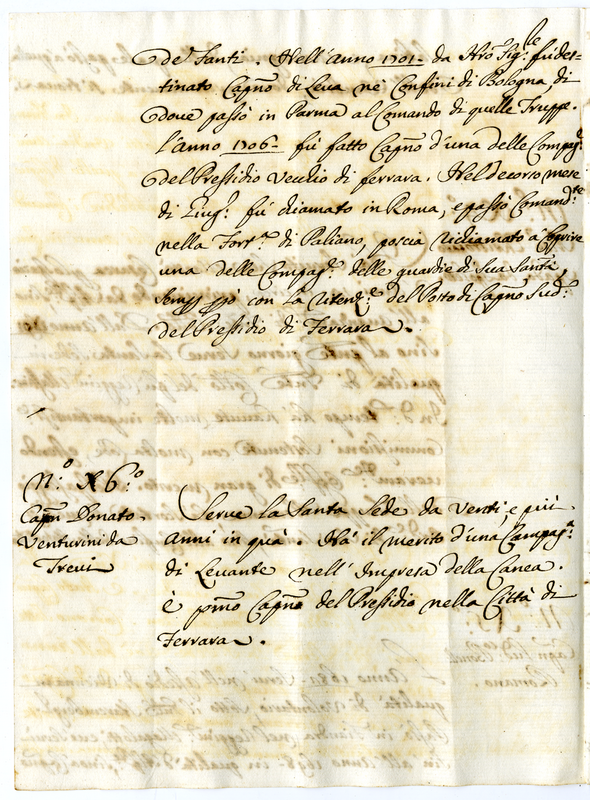 de' Fanti. Nell'Anno 1701. da Nro Sig.re fù des=
tinato Capño di Leva nè Confini di Bologna, di
doue passò in Parma al Comando di quelle Truppe.
l'anno 1706. fù fatto Capño d'una delle Compag.e
del Pressidio Vecchio di ferrara. Nel decorso mese
di Giug.o fù chiamato in Roma, e passò Comand.te
nella Fort.a di Paliano, poscia richiamato à Coprire
una delle Compag.e delle guardie di Sua Santà,
con la ritenz.e del Posto di Capño Sud.o
del Pressidio di Ferrara.
N.o 6.o
Capñ Donato
Venturini da
Trevi
Serue la Santa Sede da Venti, e più
anni in quà. Hà il merito d'una Campag.a
di Leuante nell'Impresa della Canea.
è prmo Capño del Pressidio nella Città di
Ferrara.